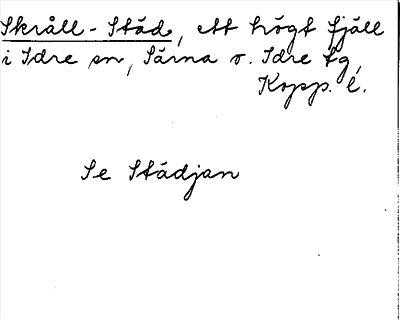 Skråll-Städ, ett högt fjäll
i Idre sn, Särna o. Idre tg,
Kopp. l.
Se Städjan